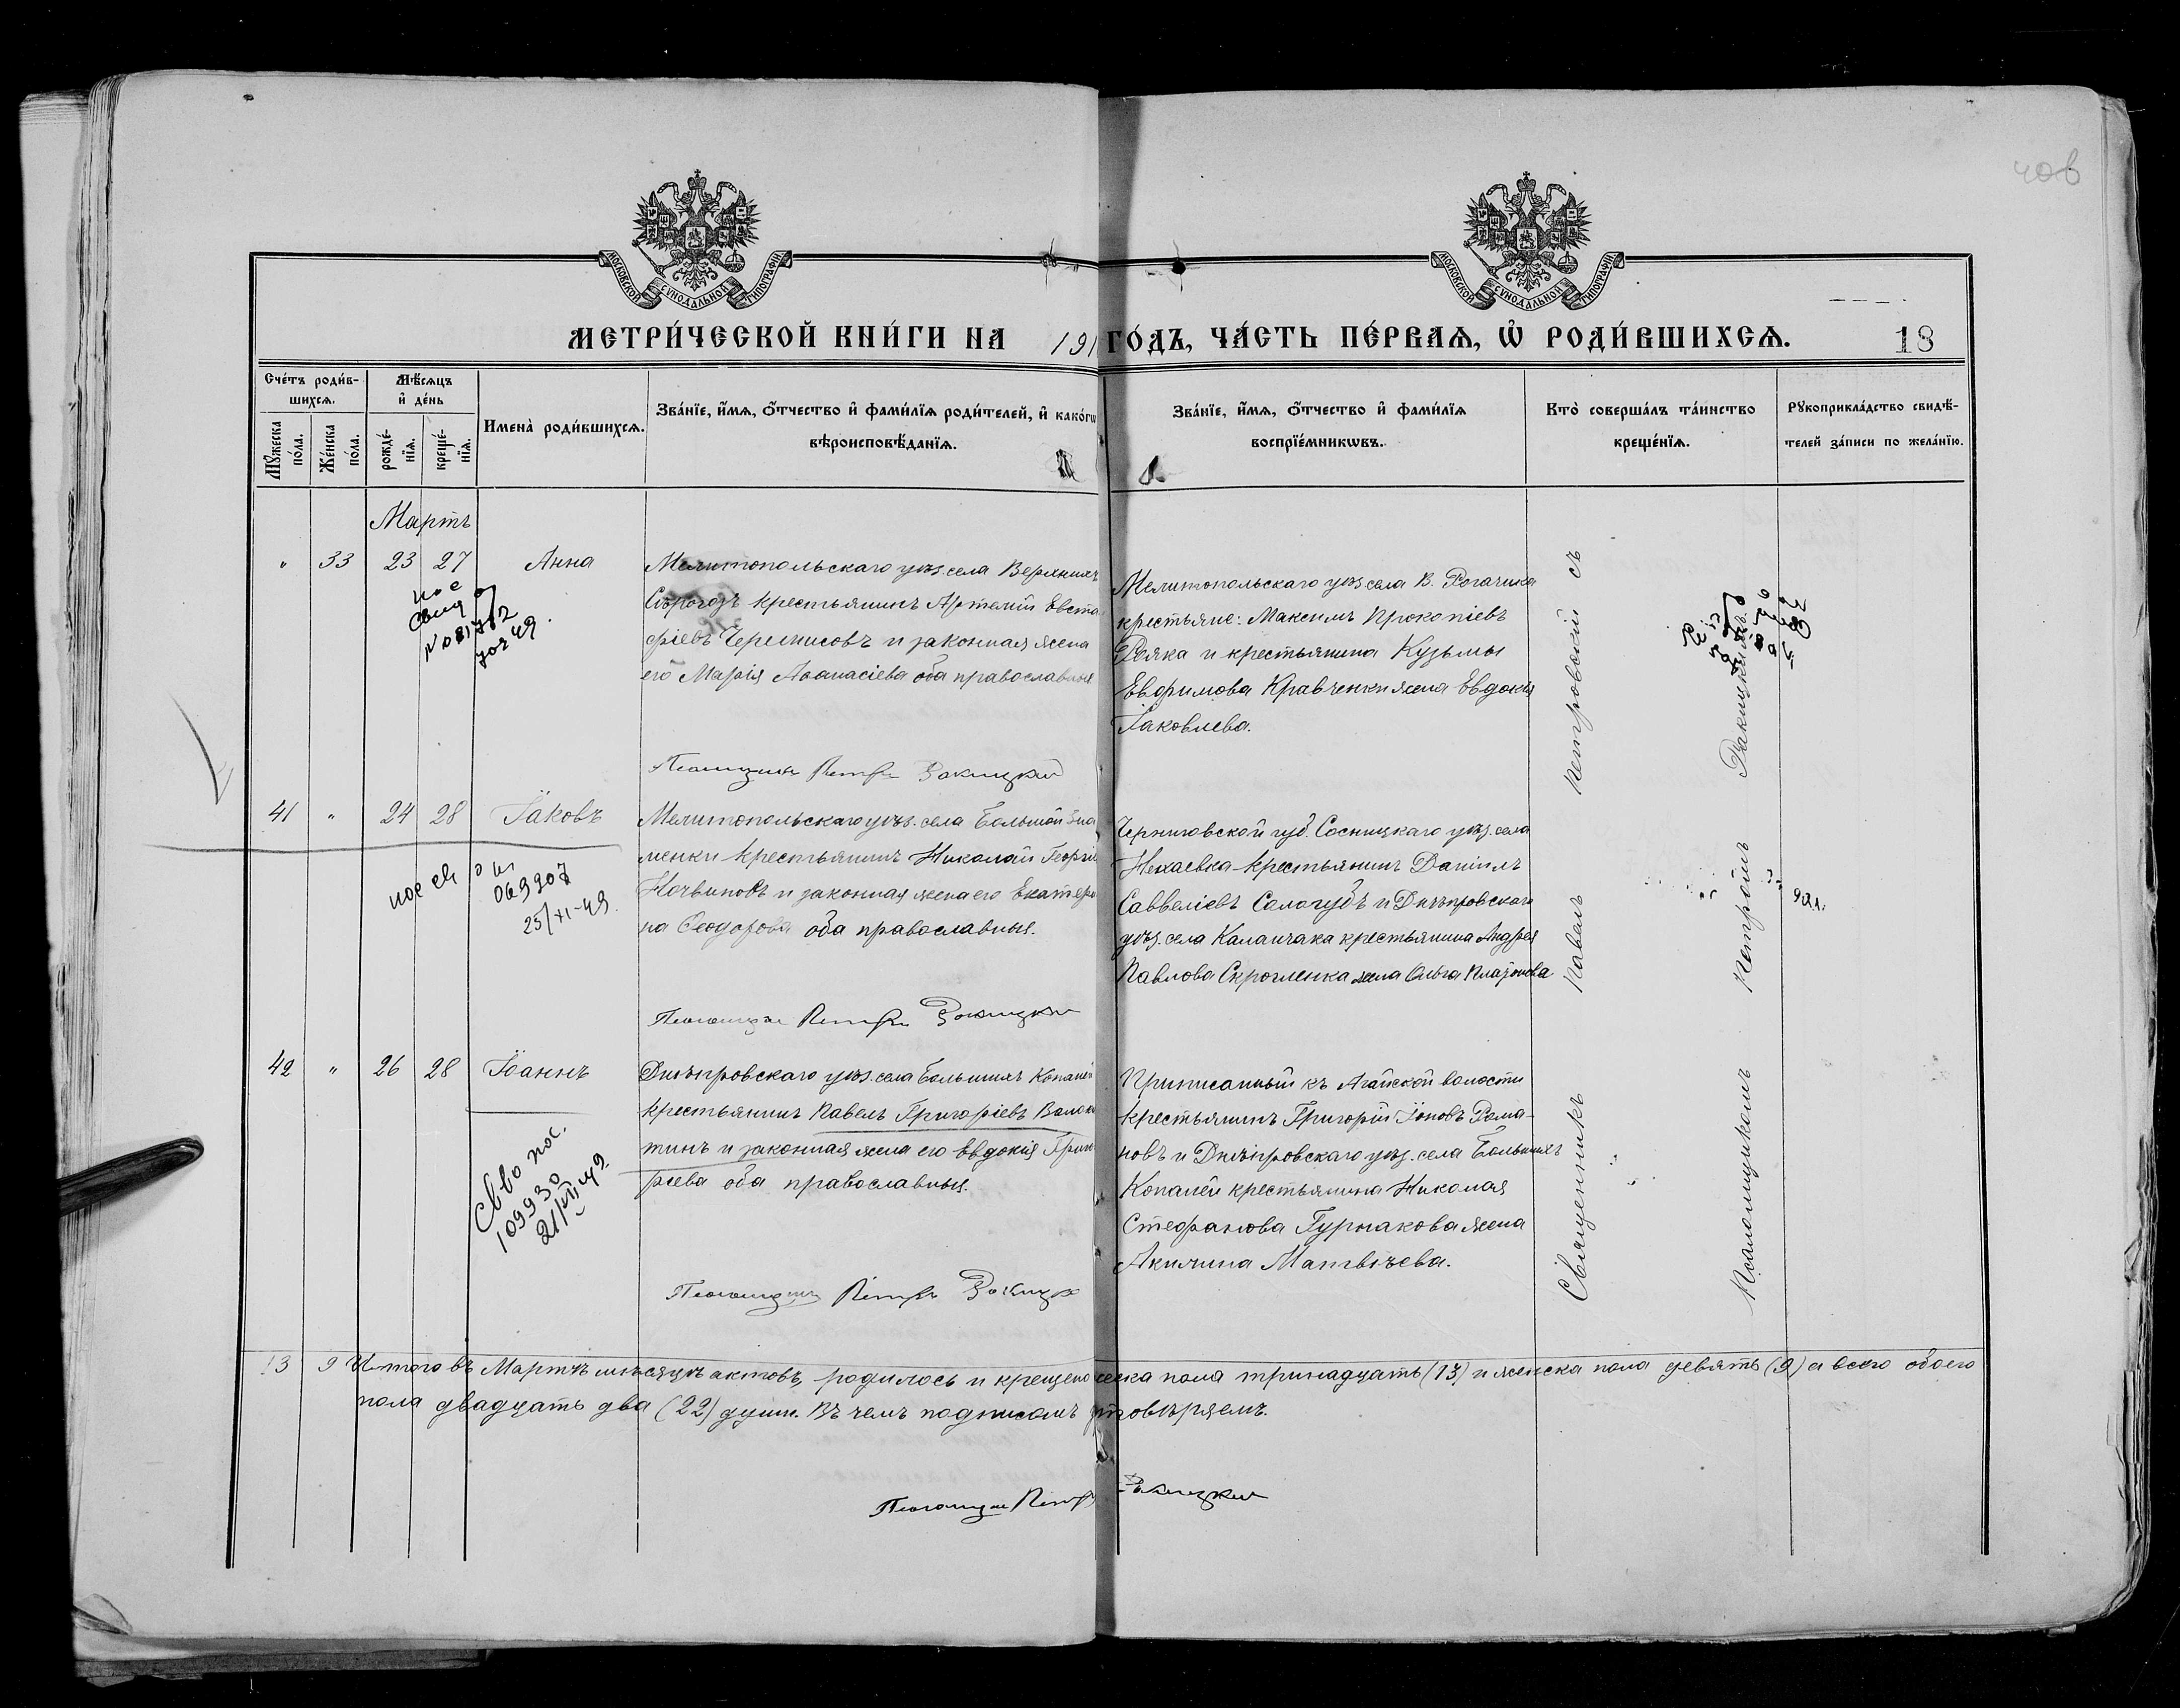 406
МОСКОВСКОЙ СѴНОДАЛЬНОЙ ТИПОГРАФІИ
МОСКОВСКОЙ СѴНОДАЛЬНОЙ ТИПОГРАФІИ
МЕТРИ́ЧЕСКОЙ КНИ́ГИ НА 191 ГО́ДЪ, ЧА́СТЬ ПЕ́РВАѦ, Ѡ҆ РОДИ́ВШИХСѦ. 18
Сче́тъ роди́в-
шихсѧ.
Мꙋ́жеска по́ла.
Же́нска по́ла.
Мѣ́сѧцъ
и҆ де́нь
рожде́-
нїѧ.
креще́-
нїѧ.
И҆мена̀ роди́вшихсѧ.
Зва́нїе, и҆́мѧ, ѻ҆́тчество и҆ фами́лїѧ роди́телей, и҆ како́гѡ
вѣроисповѣ́данїѧ.
Зва́нїе, и҆́мѧ, ѻ҆́тчество и҆ фами́лїѧ
воспрїе́мникѡвъ.
Кто̀ соверша́лъ та́инство
креще́нїѧ.
Рꙋкоприкла́дство свидѣ́-
телей за́писи по жела́нїю.
Мартъ
" 33 23 27 Анна
Мелитопольскаго уѣз. села Верхнихъ
Сѣрогозъ крестьянинъ Артемій Евста-
фіевъ Черемисовъ и законная жена
его Марія Аѳанасіева оба православные
Мелитопольскаго уѣз. села В. Рогачика
крестьяне: Максимъ Прокопіевъ
Рояка и крестьянина Кузьмы
Евфимова Кравченки жена Евдокія
Іаковлева.
Псаломщикъ Петръ Ракицкій
41 " 24 28 Іаковъ
Мелитопольскаго уѣз. села Большой Зна
менки крестьянинъ Николай Георгіе
Ночвиновъ и законная жена его Екатери
на Ѳеодорова оба православные.
Черниговской губ. Сосницкаго уѣз. села
Нехаевка крестьянинъ Даніилъ
Саввеліевъ Сологубъ и Днѣпровскаго
уѣз. села Каланчака крестьянина Андрея
Павлова Скрогленка жена Ольга Платонова.
069907
25/XI-49.
Псаломщикъ Петръ Ракицкій
42 " 26 28 Іоаннъ
Днѣпровскаго уѣз. села Большихъ Копаней
крестьянинъ Павелъ Григоріевъ Валок
тинъ и законная жена его Евдокія Григо
ріева оба православные.
Приписанный къ Агайской волости
крестьянинъ Григорій Іоновъ Рома-
новъ и Днѣпровскаго уѣз. села Большихъ
Копаней крестьянина Николая
Стефанова Гурнакова жена
Акилина Матвѣева.
Св-во пос.
109930
21/VII 49
Псаломщикъ Петръ Ракицк
Священникъ Павелъ Петровскій съ
Псаломщикомъ Петромъ Ракицкимъ.
13 9 Итого въ Мартѣ мѣсяцѣ актовъ, родилось и крещено жеска пола тринадцать (13) и женска пола девять (9) а всего обоего
пола двадцать два (22) души. Въ чемъ подписомъ утовѣряемъ.
Псаломщикъ Петръ Ракицкій